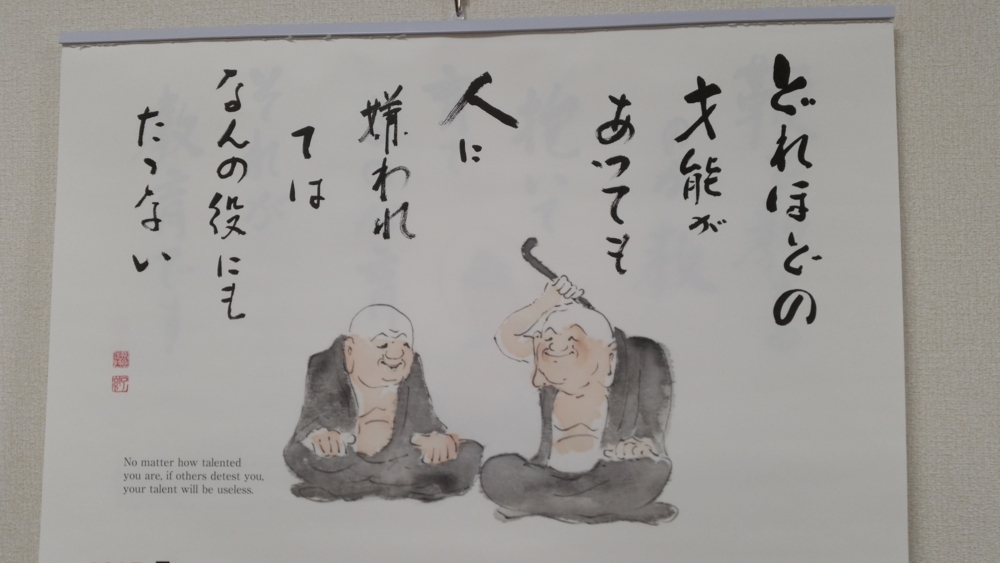 どれほどの
才能が
あっても
人に
嫌われ
ては
なんの役にも
たゝない
No matter how talented
you are, if others detest you,
your talent will be useless.